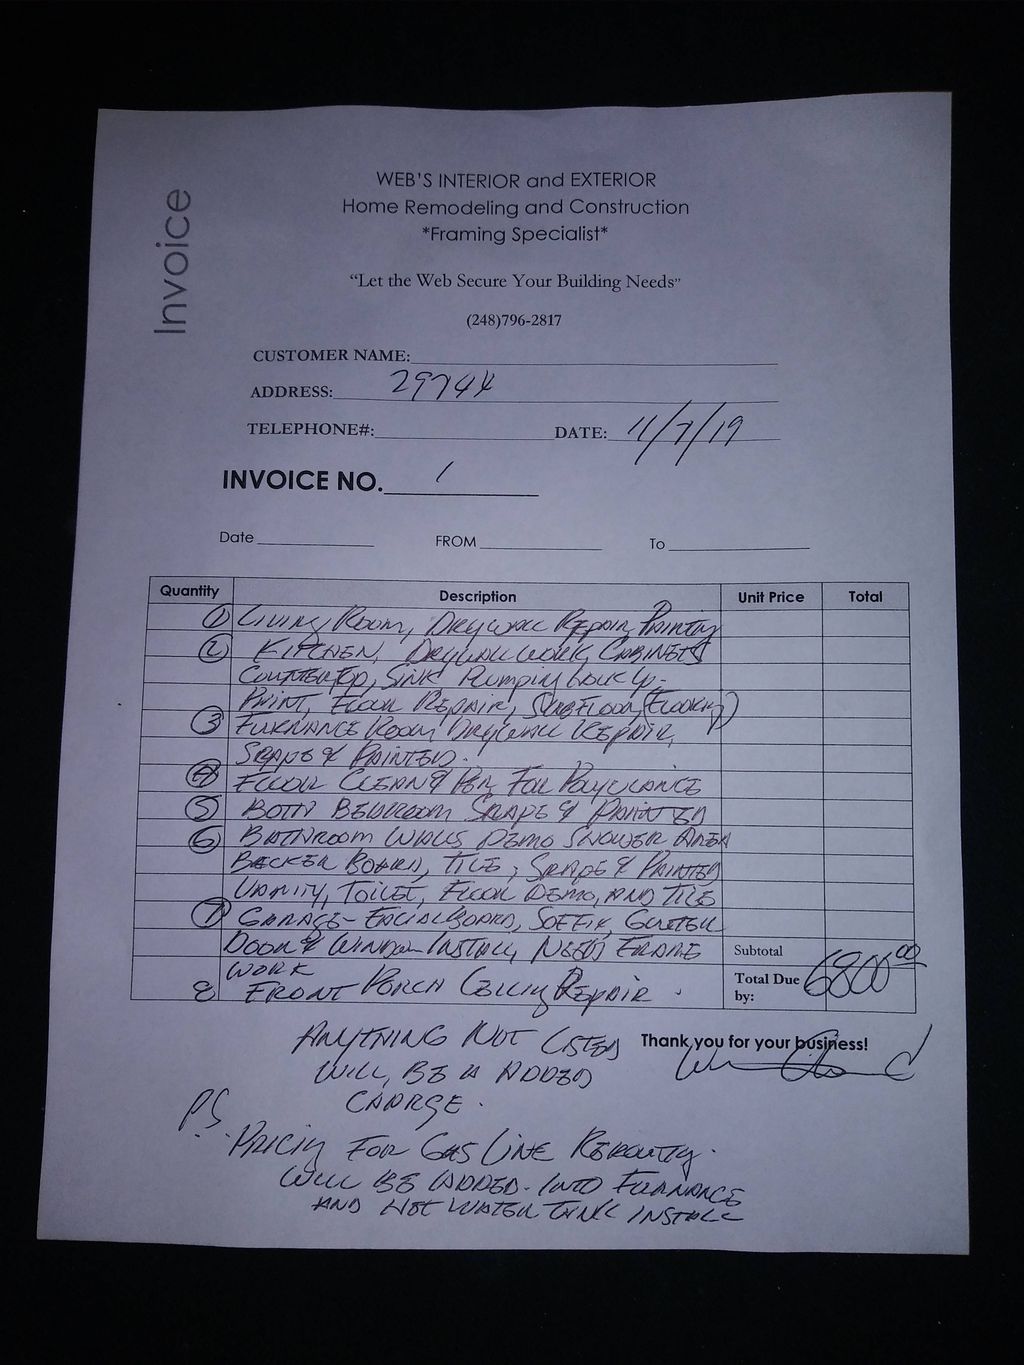 Invoice
WEB'S INTERIOR and EXTERIOR
Home Remodeling and Construction
*Framing Specialist*
“Let the Web Secure Your Building Needs”
(248)796-2817
CUSTOMER NAME:
ADDRESS: 29744
TELEPHONE#: DATE: 11/7/19
INVOICE NO. 1
Date FROM To
Quantity Description Unit Price Total
1 LIVING ROOM, DRYWALL REPAIR, PAINTING
2 KITCHEN, DRYWALL WORK, CABINETS
COUNTERTOP, SINK PLUMPING HOOK UP-
PAINT, FLOOR REPAIR, SUBFLOOR (FLOORING)
3 FURNANCE ROOM DRYWALL REPAIR,
SRAPE & PAINTED.
4 FLOOR CLEAN & FOR
5 BOTH BEDROOM SRAPE & PAINTED
6 BATHROOM WALLS DEMO SHOWER AREA
BACKER BOARD, TILE, SRAPE & PAINTED
VANITY, TOILET, FLOOR DEMO, AND TILE
7 GARAGE- FACIAL BOARD, SOFFIT, GUTTER
DOOR & WINDOW INSTALL, NEED FRAME
WORK
Subtotal
8 FRONT PORCH CEILING REPAIR.
Total Due by: 6800.00
Thank you for your business!
ANYTHING NOT LISTED
WILL, BE A ADDED
CHARGE.
P.S.
PRICING FOR GAS LINE REROUTING.
WILL BE ADDED. INTO FURNANCE
AND HOT WATER TANK INSTALL